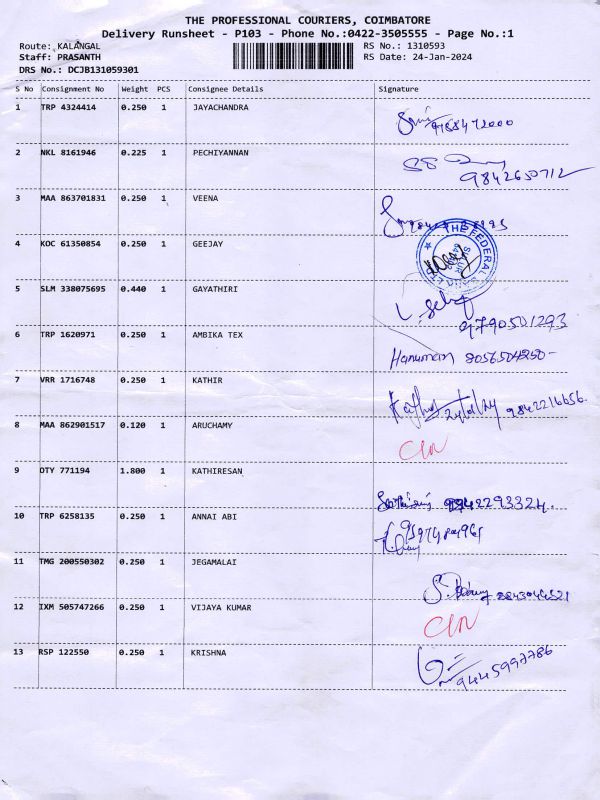 THE PROFESSIONAL COURIERS, COIMBATORE
Delivery Runsheet - P103 - Phone No.:0422-3505555 - Page No.:1
Route: KALANGAL RS No.: 1310593
Staff: PRASANTH RS Date: 24-Jan-2024
DRS No.: DCJB131059301
S No Consignment No Weight PCS Consignee Details Signature
1 TRP 4324414 0.250 1 JAYACHANDRA
2 NKL 8161946 0.225 1 PECHIYANNAN
9842650712
3 MAA 863701831 0.250 1 VEENA
4 KOC 61350854 0.250 1 GEEJAY
THE FEDERAL
5 SLM 338075695 0.440 1 GAYATHIRI
9790501293
6 TRP 1620971 0.250 1 AMBIKA TEX
Hanuman
7 VRR 1716748 0.250 1 KATHIR
9842216656
8 MAA 862901517 0.120 1 ARUCHAMY
9 OTY 771194 1.800 1 KATHIRESAN
10 TRP 6258135 0.250 1 ANNAI ABI
11 TMG 200550302 0.250 1 JEGAMALAI
12 IXM 505747266 0.250 1 VIJAYA KUMAR
13 RSP 122550 0.250 1 KRISHNA
9445997786